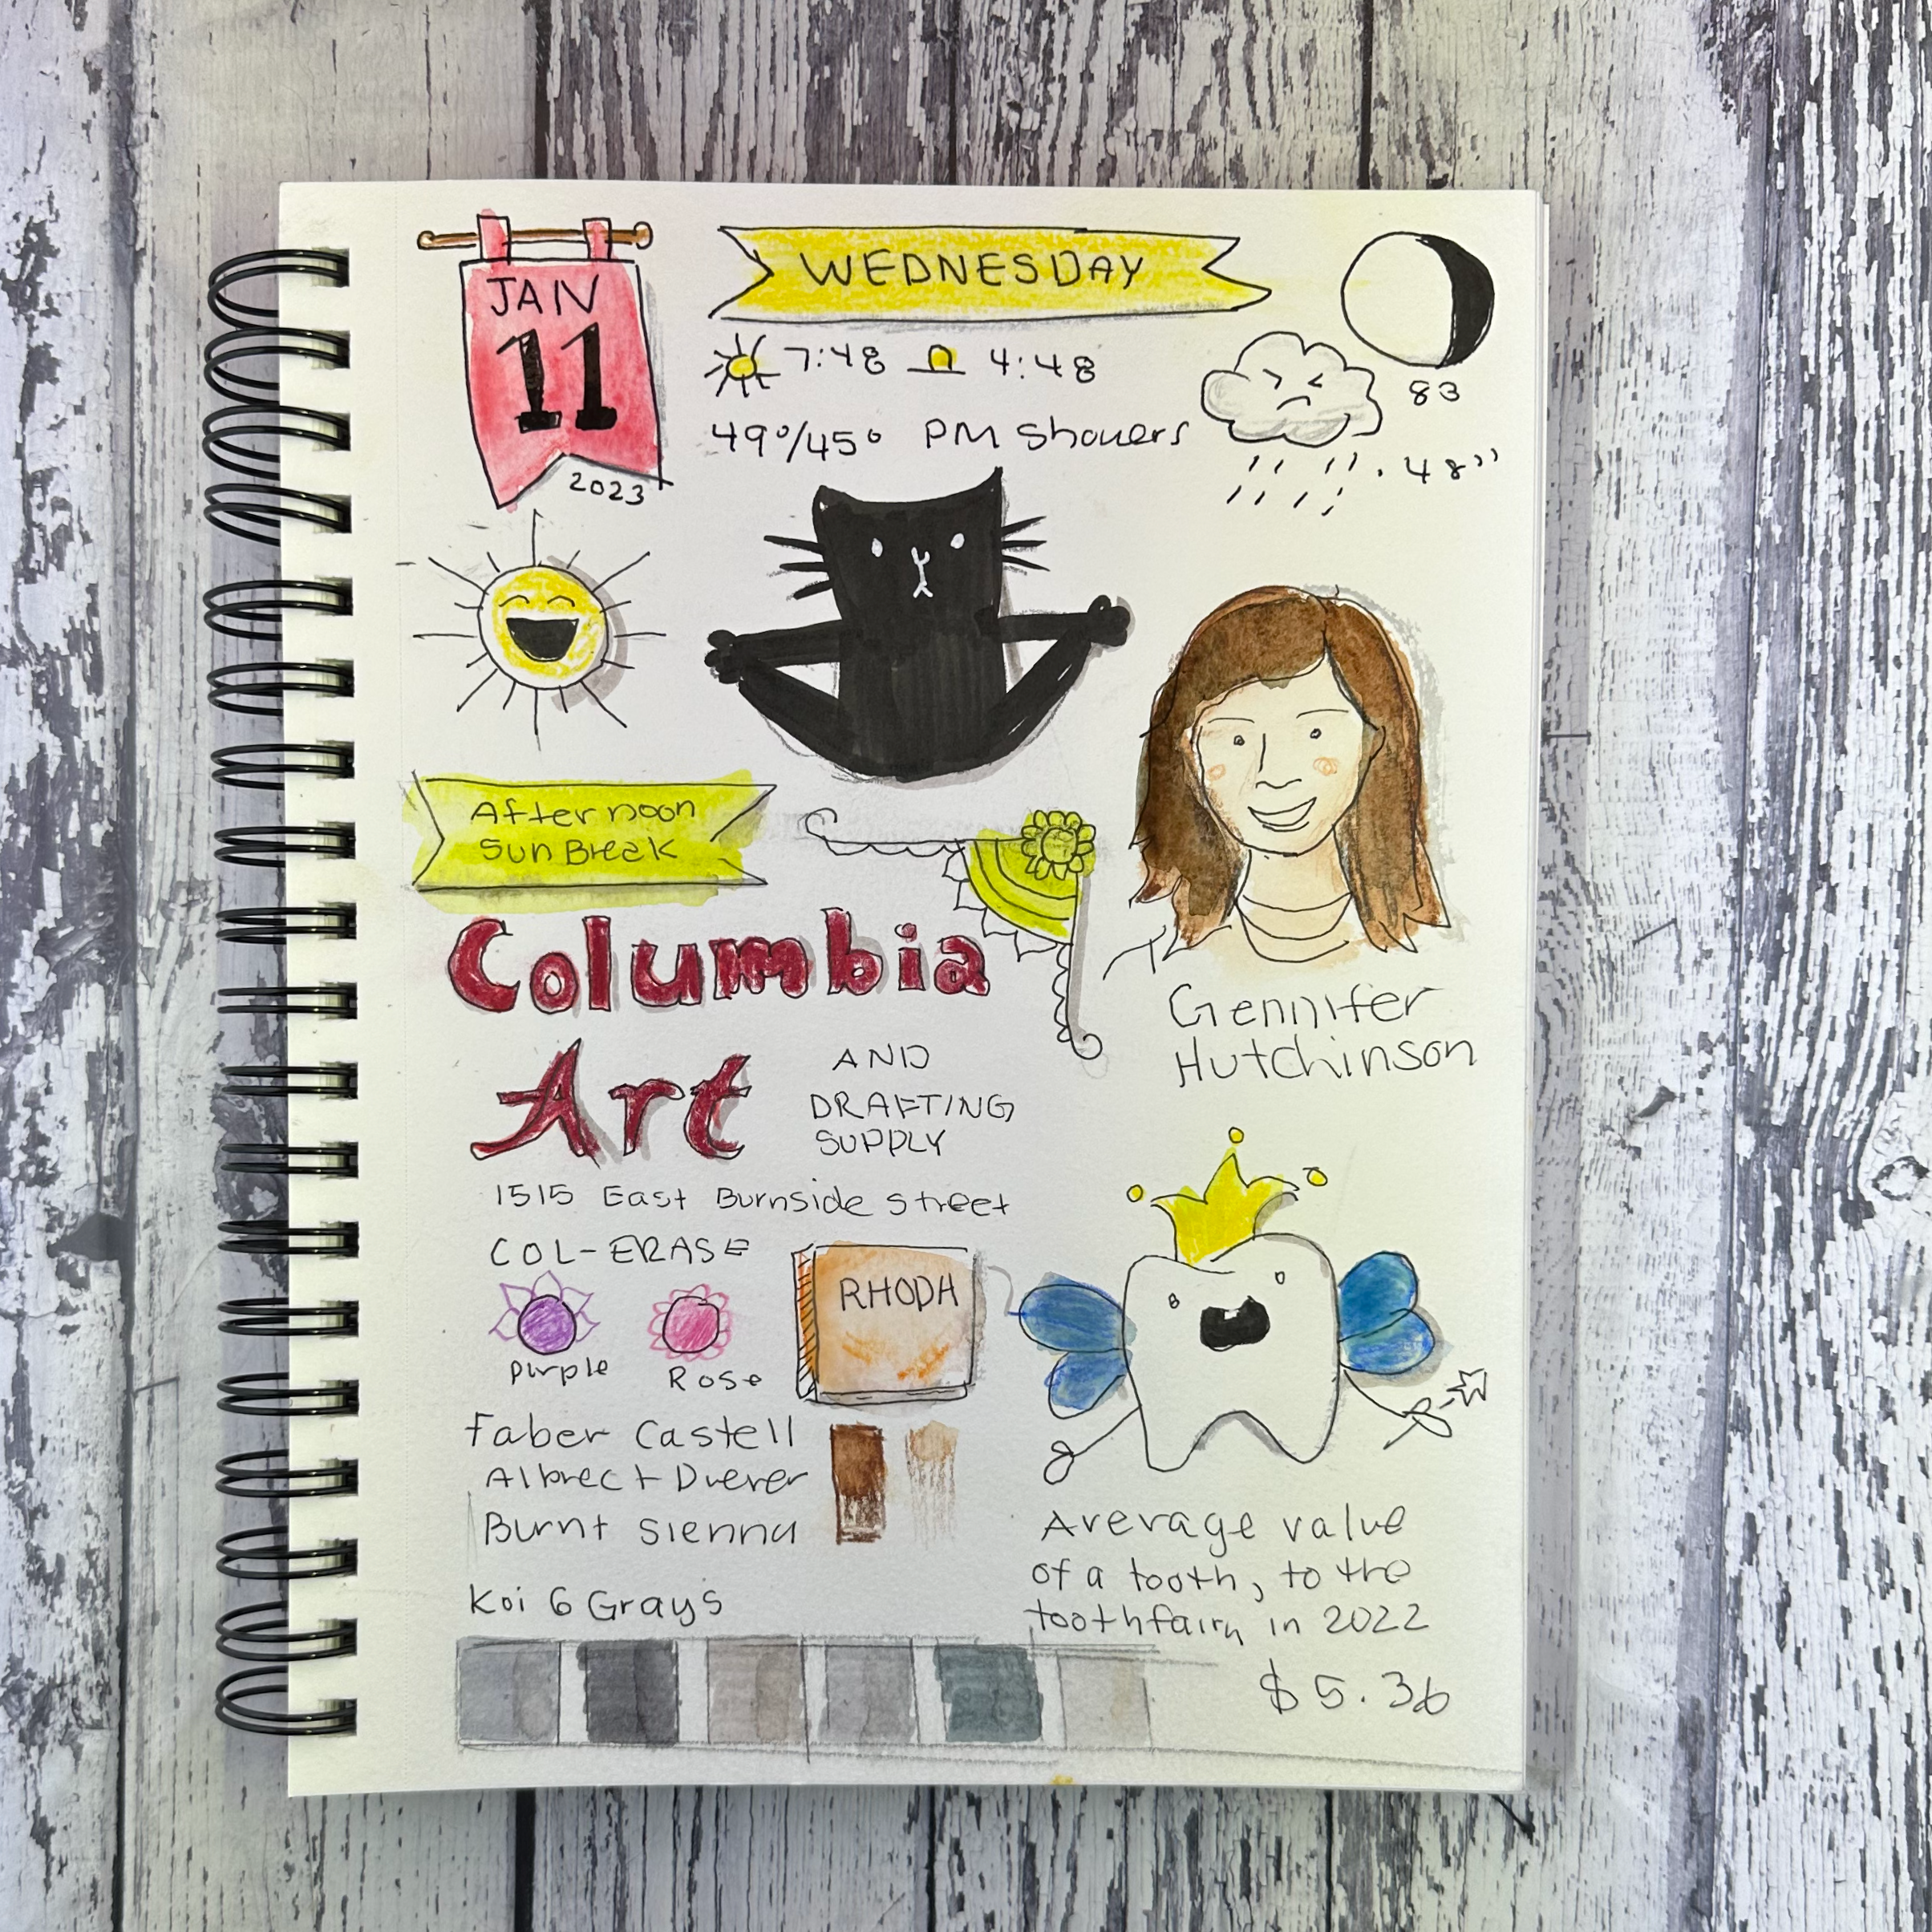 JAN
11
2023
WEDNESDAY
7:48 4:48
49°/45° PM Showers
83
.48"
Afternoon
Sun Break
Columbia
Art
AND
DRAFTING
SUPPLY
1515 East Burnside Street
Gennifer
Hutchinson
COL-ERASE
Purple
Rose
RHODA
Faber Castell
Albrect Duerer
Burnt Sienna
Koi 6 Grays
Average value
of a tooth, to the
toothfairy in 2022
$5.36